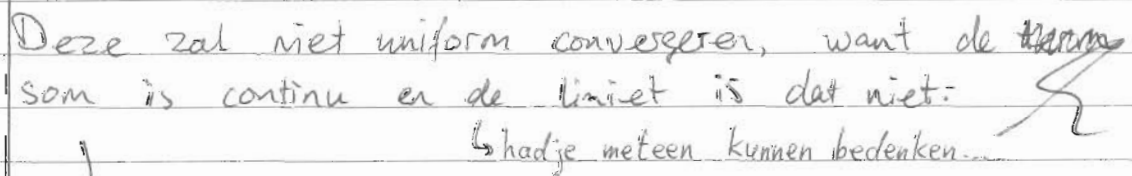 Deze zal niet uniform convergeren, want de
som is continu en de limiet is dat niet.
↳ had je meteen kunnen bedenken...